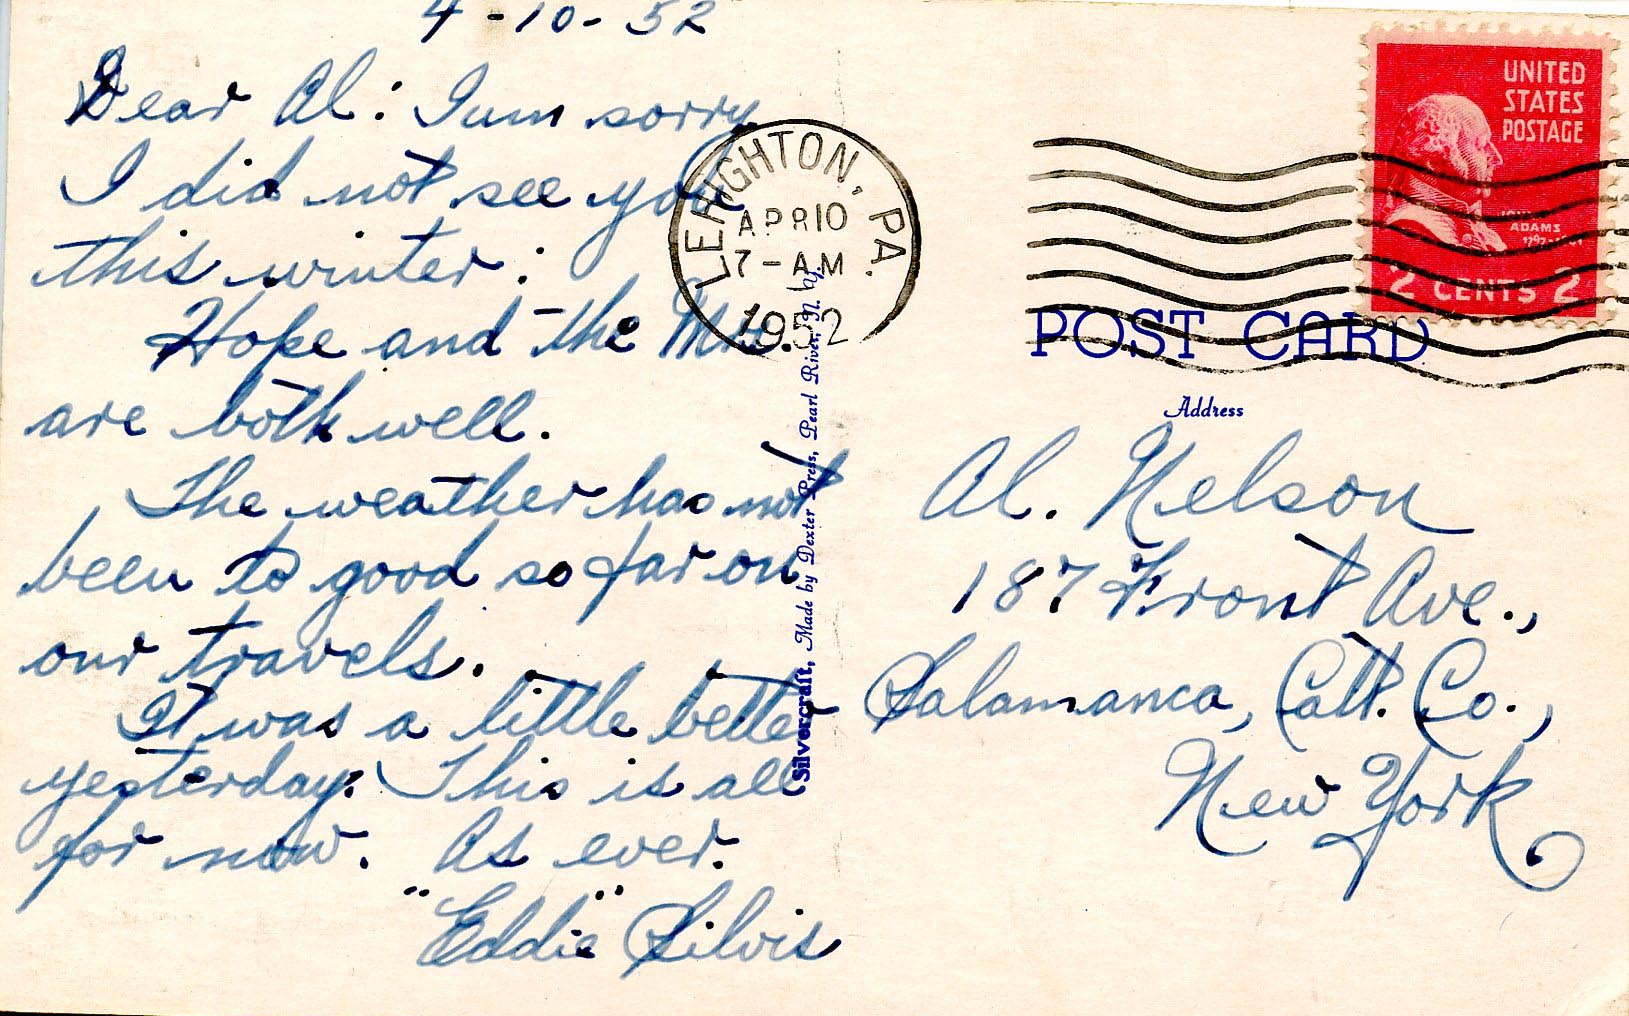 4-10-52
Dear Al: I am sorry
I did not see you
this winter:
Hope and the Mrs.
are both well.
The weather has not
been to good so far on
our travels.
It was a little better
yesterday. This is all
for now. As ever.
"Eddie" Silvis
LEHIGHTON, PA.
APR 10
7-AM
1952
Silvercraft, Made by Dexter Press, Pearl River, N. Y.
UNITED
STATES
POSTAGE
JOHN
ADAMS
1797-1801
2 CENTS 2
POST CARD
Address
Al. Nelson
187 Front Ave.,
Salamanca, Catt. Co.,
New York